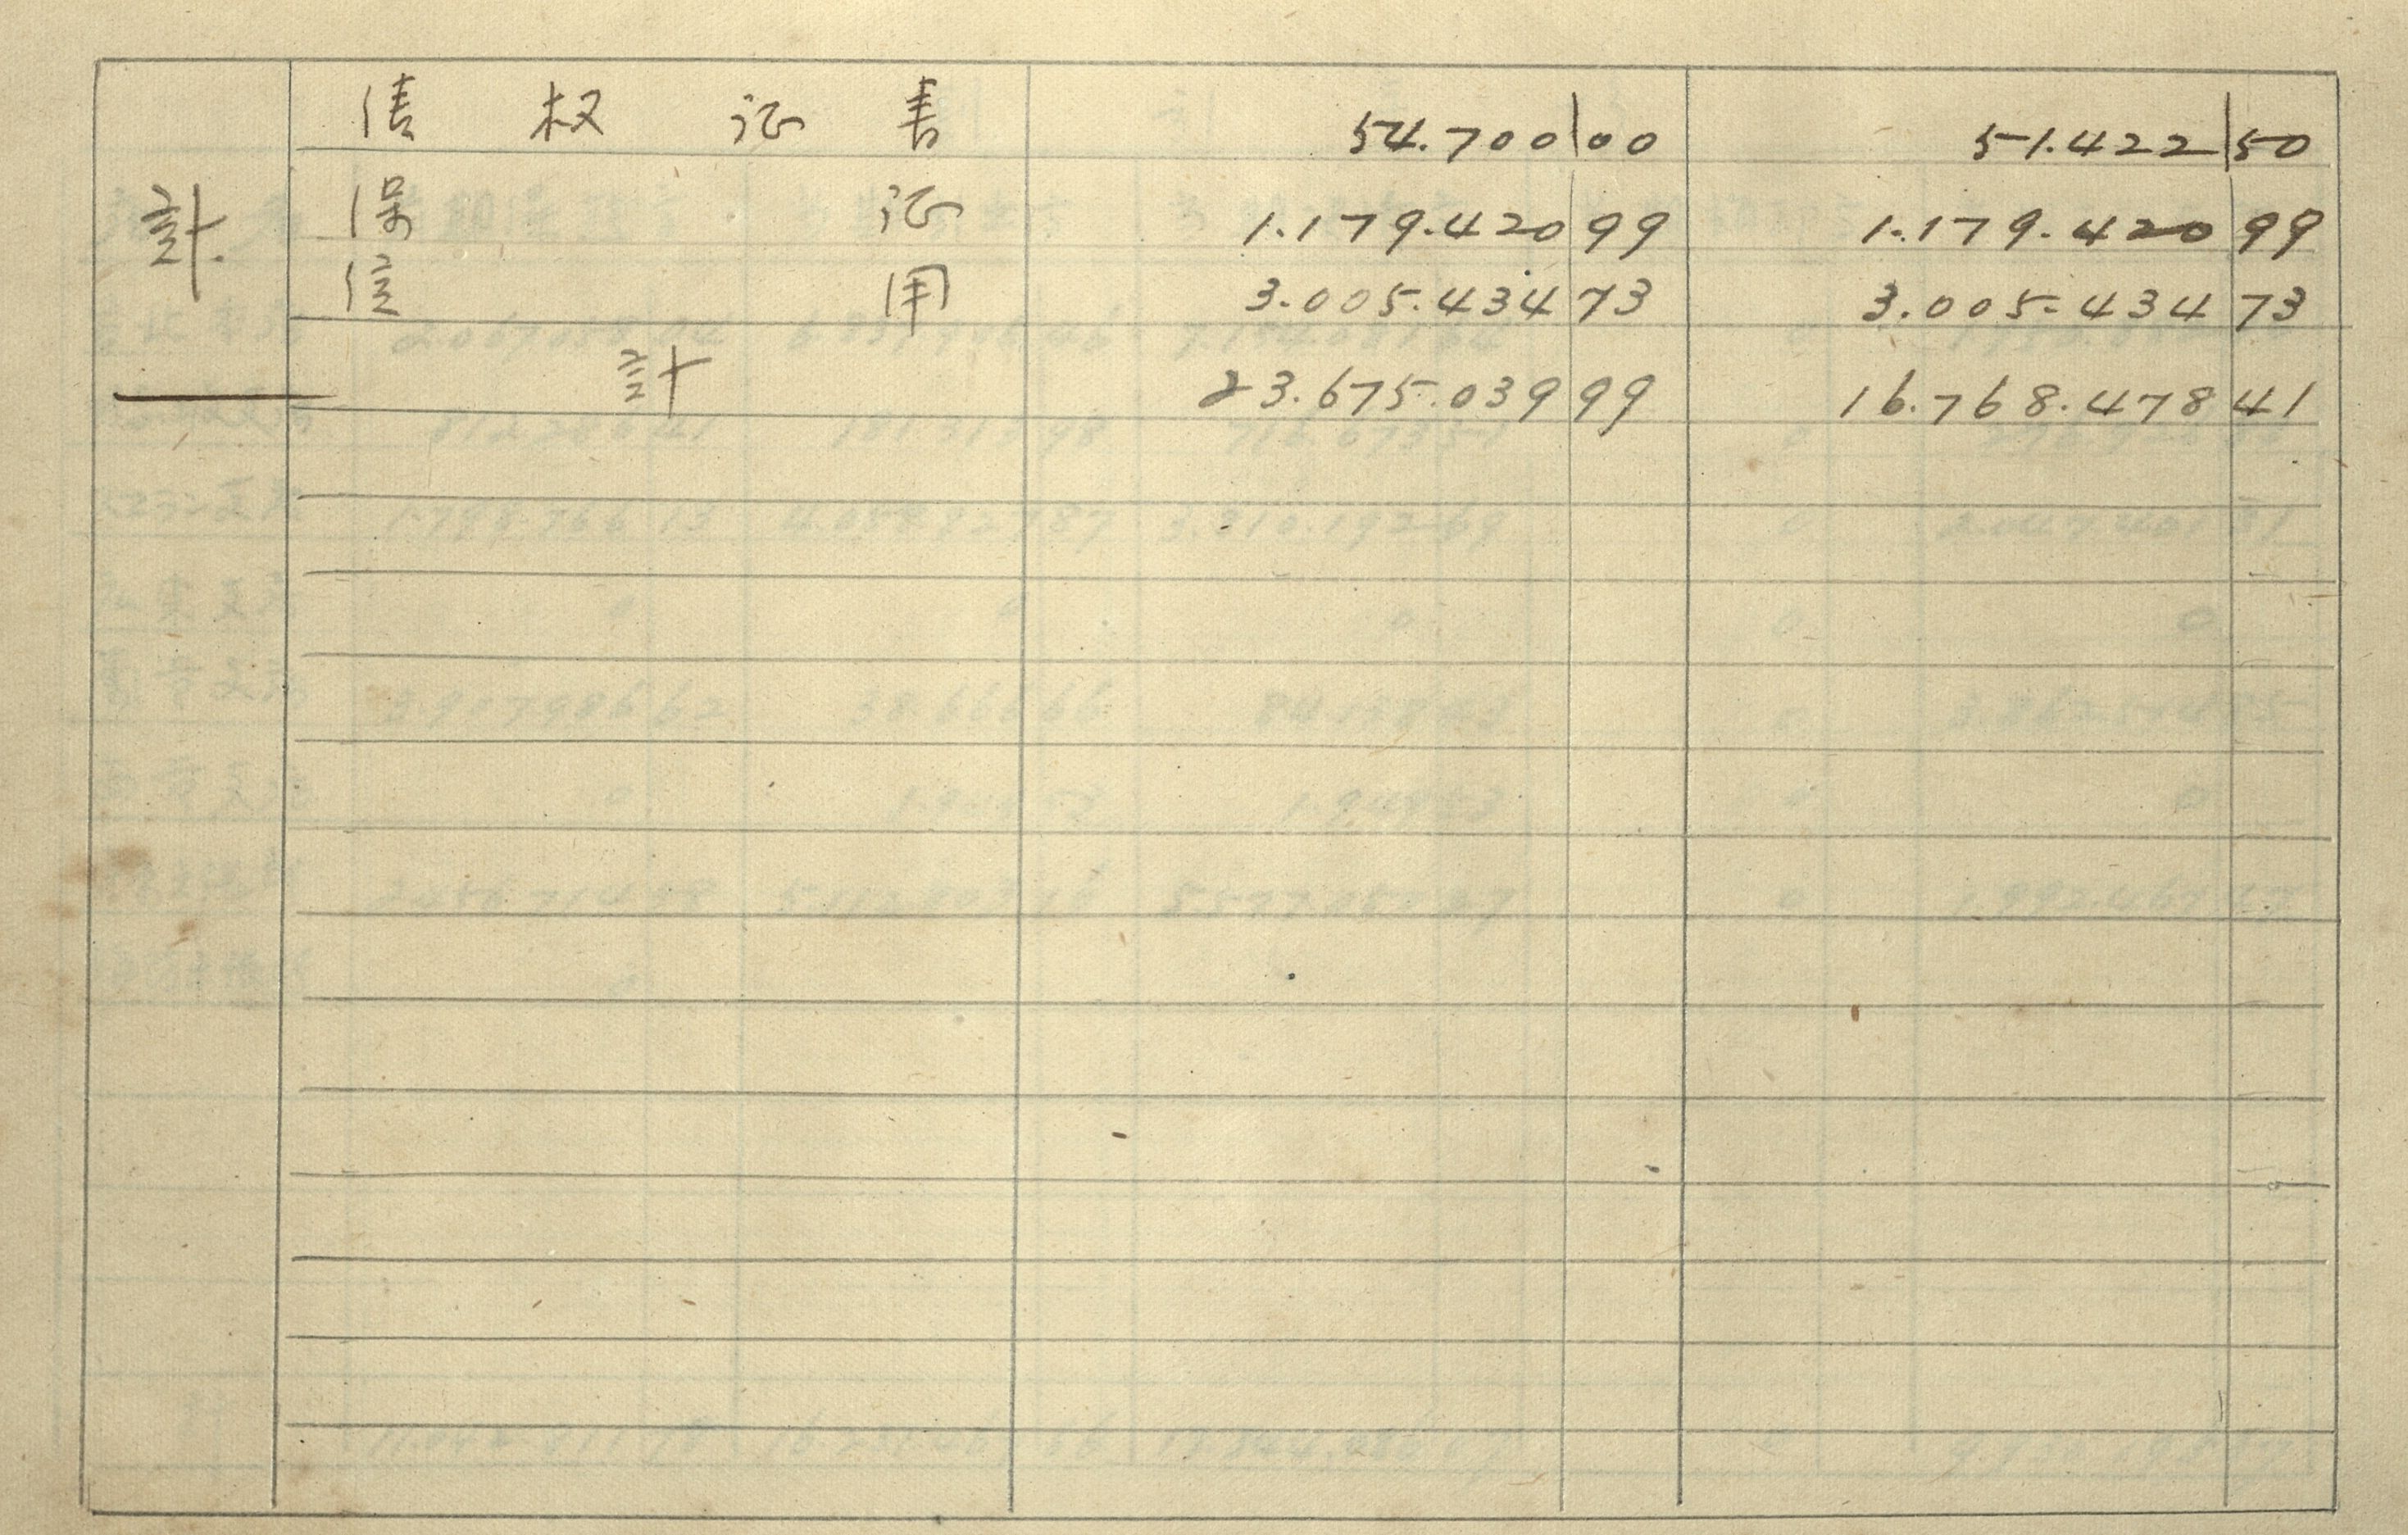 計
債权証書 54.700 00 51.422 50
保証 1.179.420 99 1.179.420 99
信用 3.005.434 73 3.005.434 73
計 23.675.039 99 16.768.478 41